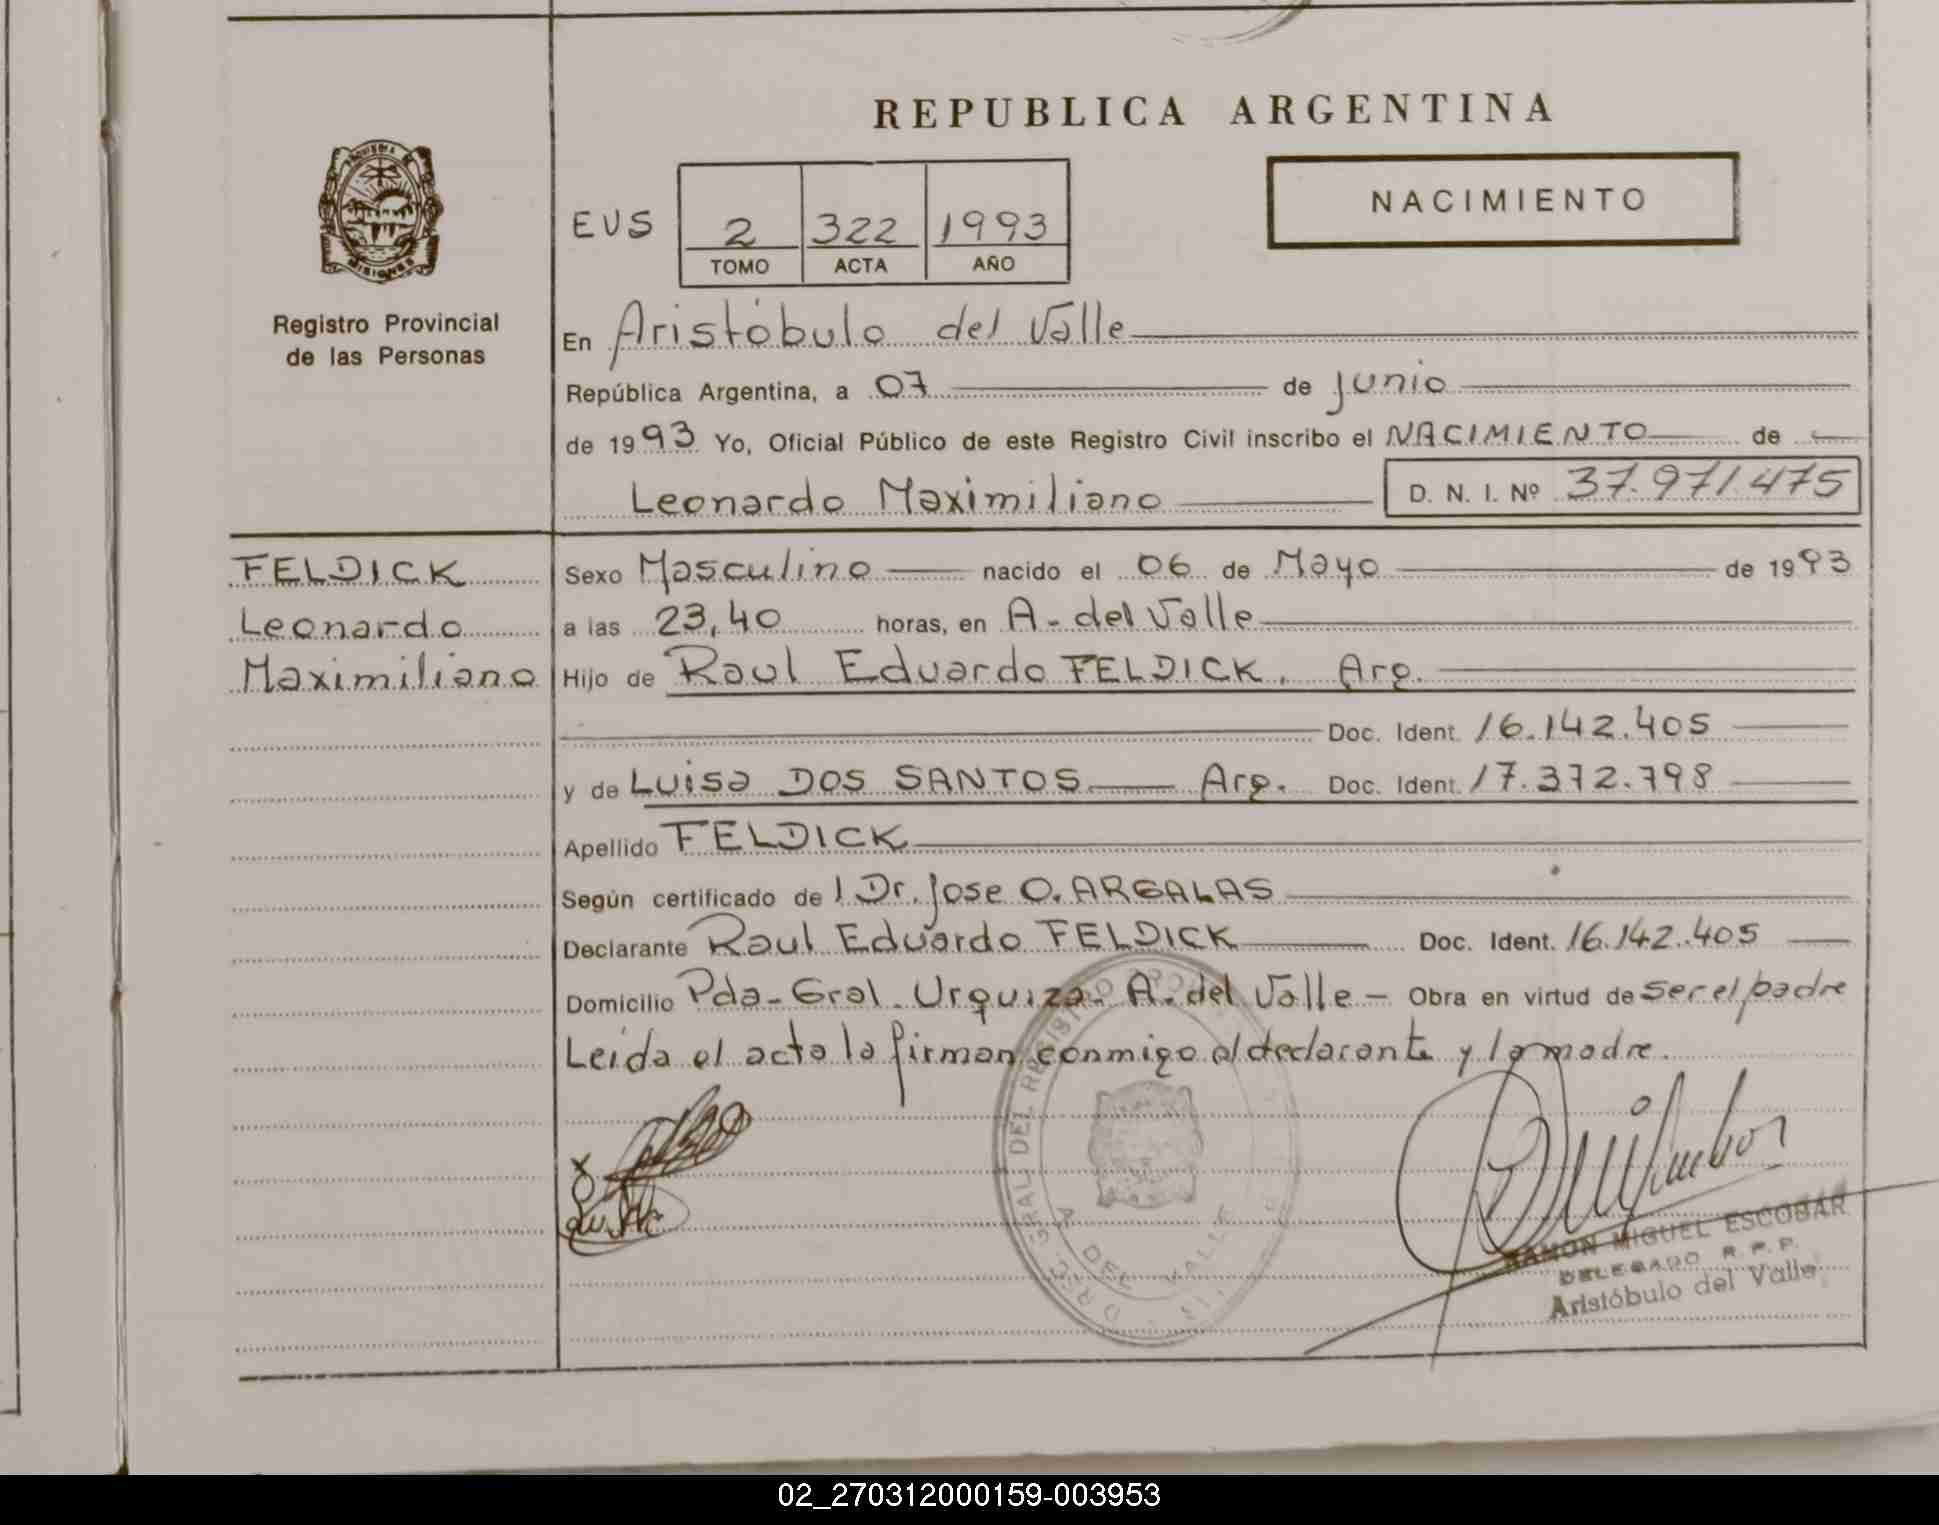 REPUBLICA ARGENTINA
PROVINCIA DE
MISIONES
Registro Provincial
de las Personas
EVS 2 322 1993
TOMO ACTA AÑO
NACIMIENTO
En Aristóbulo del Valle
República Argentina, a 07 de Junio
de 1993 Yo, Oficial Público de este Registro Civil inscribo el NACIMIENTO de
Leonardo Maximiliano D. N. I. Nº 37.971.475
FELDICK
Leonardo
Maximiliano
Sexo Masculino nacido el 06 de Mayo de 1993
a las 23,40 horas, en A. del Valle
Hijo de Raul Eduardo FELDICK, Arg.
Doc. Ident. 16.142.405
y de Luisa DOS SANTOS Arg. Doc. Ident. 17.372.798
Apellido FELDICK
Según certificado de l Dr. Jose O. ARGALAS
Declarante Raul Eduardo FELDICK Doc. Ident. 16.142.405
Domicilio Pda- Gral. Urquiza. A. del Valle - Obra en virtud de ser el padre
Leida el acta la firman conmigo el declarante y la madre.
GRAL DEL REGISTRO
A. DEL VALLE
RAMON MIGUEL ESCOBAR
DELEGADO R. P. P.
Aristóbulo del Valle
02_270312000159-003953